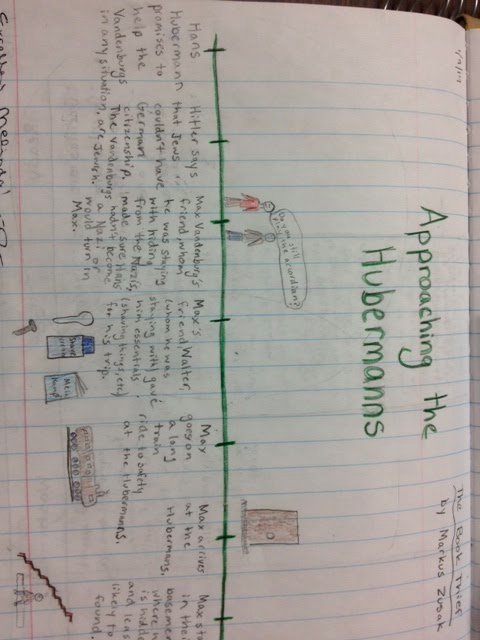 The Book Thief
by Markus Zusak
Approaching the
Hubermanns
Do you still
play the accordion?
Hans
Hubermann
promises to
help the
Vandenburgs
in any situation.
Hitler says
that Jews
couldn't have
German
citizenship.
The Vandenburgs
are Jewish.
Max Vandenburg's
friend, whom
he was staying
with hiding
from the Nazis,
made sure Hans
hadn't become
a Nazi or
would turn in
Max.
Max's
friend Walter,
(whom he was
staying with) gave
him essentials
(shaving things, etc)
for his trip.
Mein
Kampf
Max
goes on
a long
train
ride to safety
at the Hubermanns.
Max arrives
at the
Hubermanns.
Max
in
where
is
and
likely to
found.